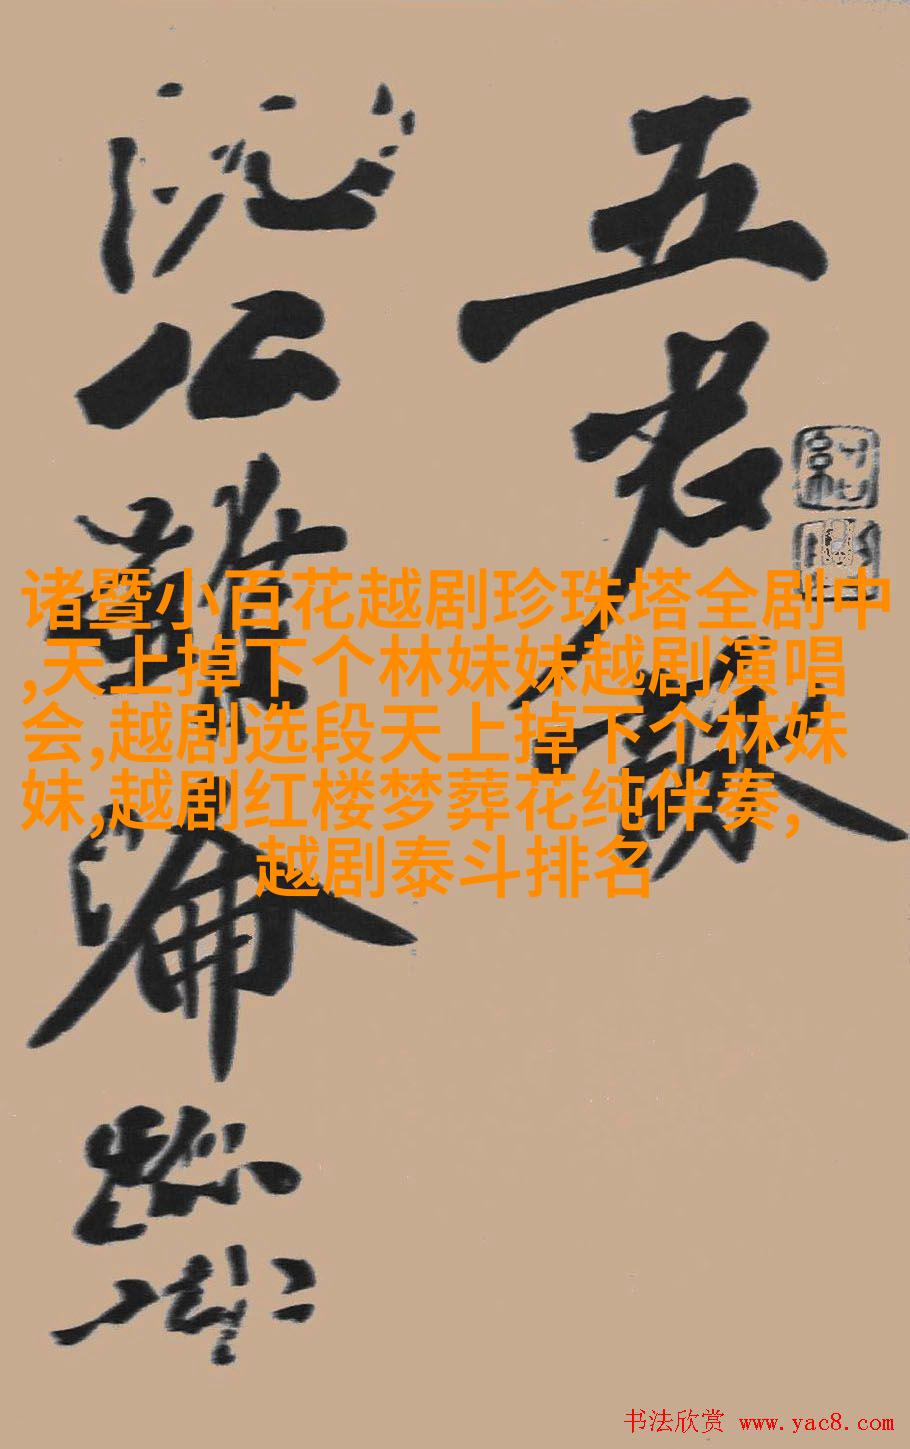 五君詠
阮公雖淪跡
诸暨小百花越剧珍珠塔全剧中
,天上掉下个林妹妹越剧演唱
会,越剧选段天上掉下个林妹
妹,越剧红楼梦葬花纯伴奏,
越剧泰斗排名
书法欣赏 www.yac8.com